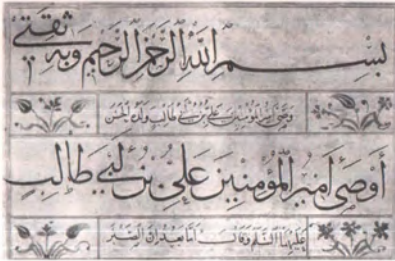 بسم الله الرحمن الرحيم وبه ثقتي
وصى أمير المؤمنين علي بن أبي طالب ولده الحسن
أوصى أمير المؤمنين علي بن أبي طالب
عليهما السلم وقال أما بعد إن